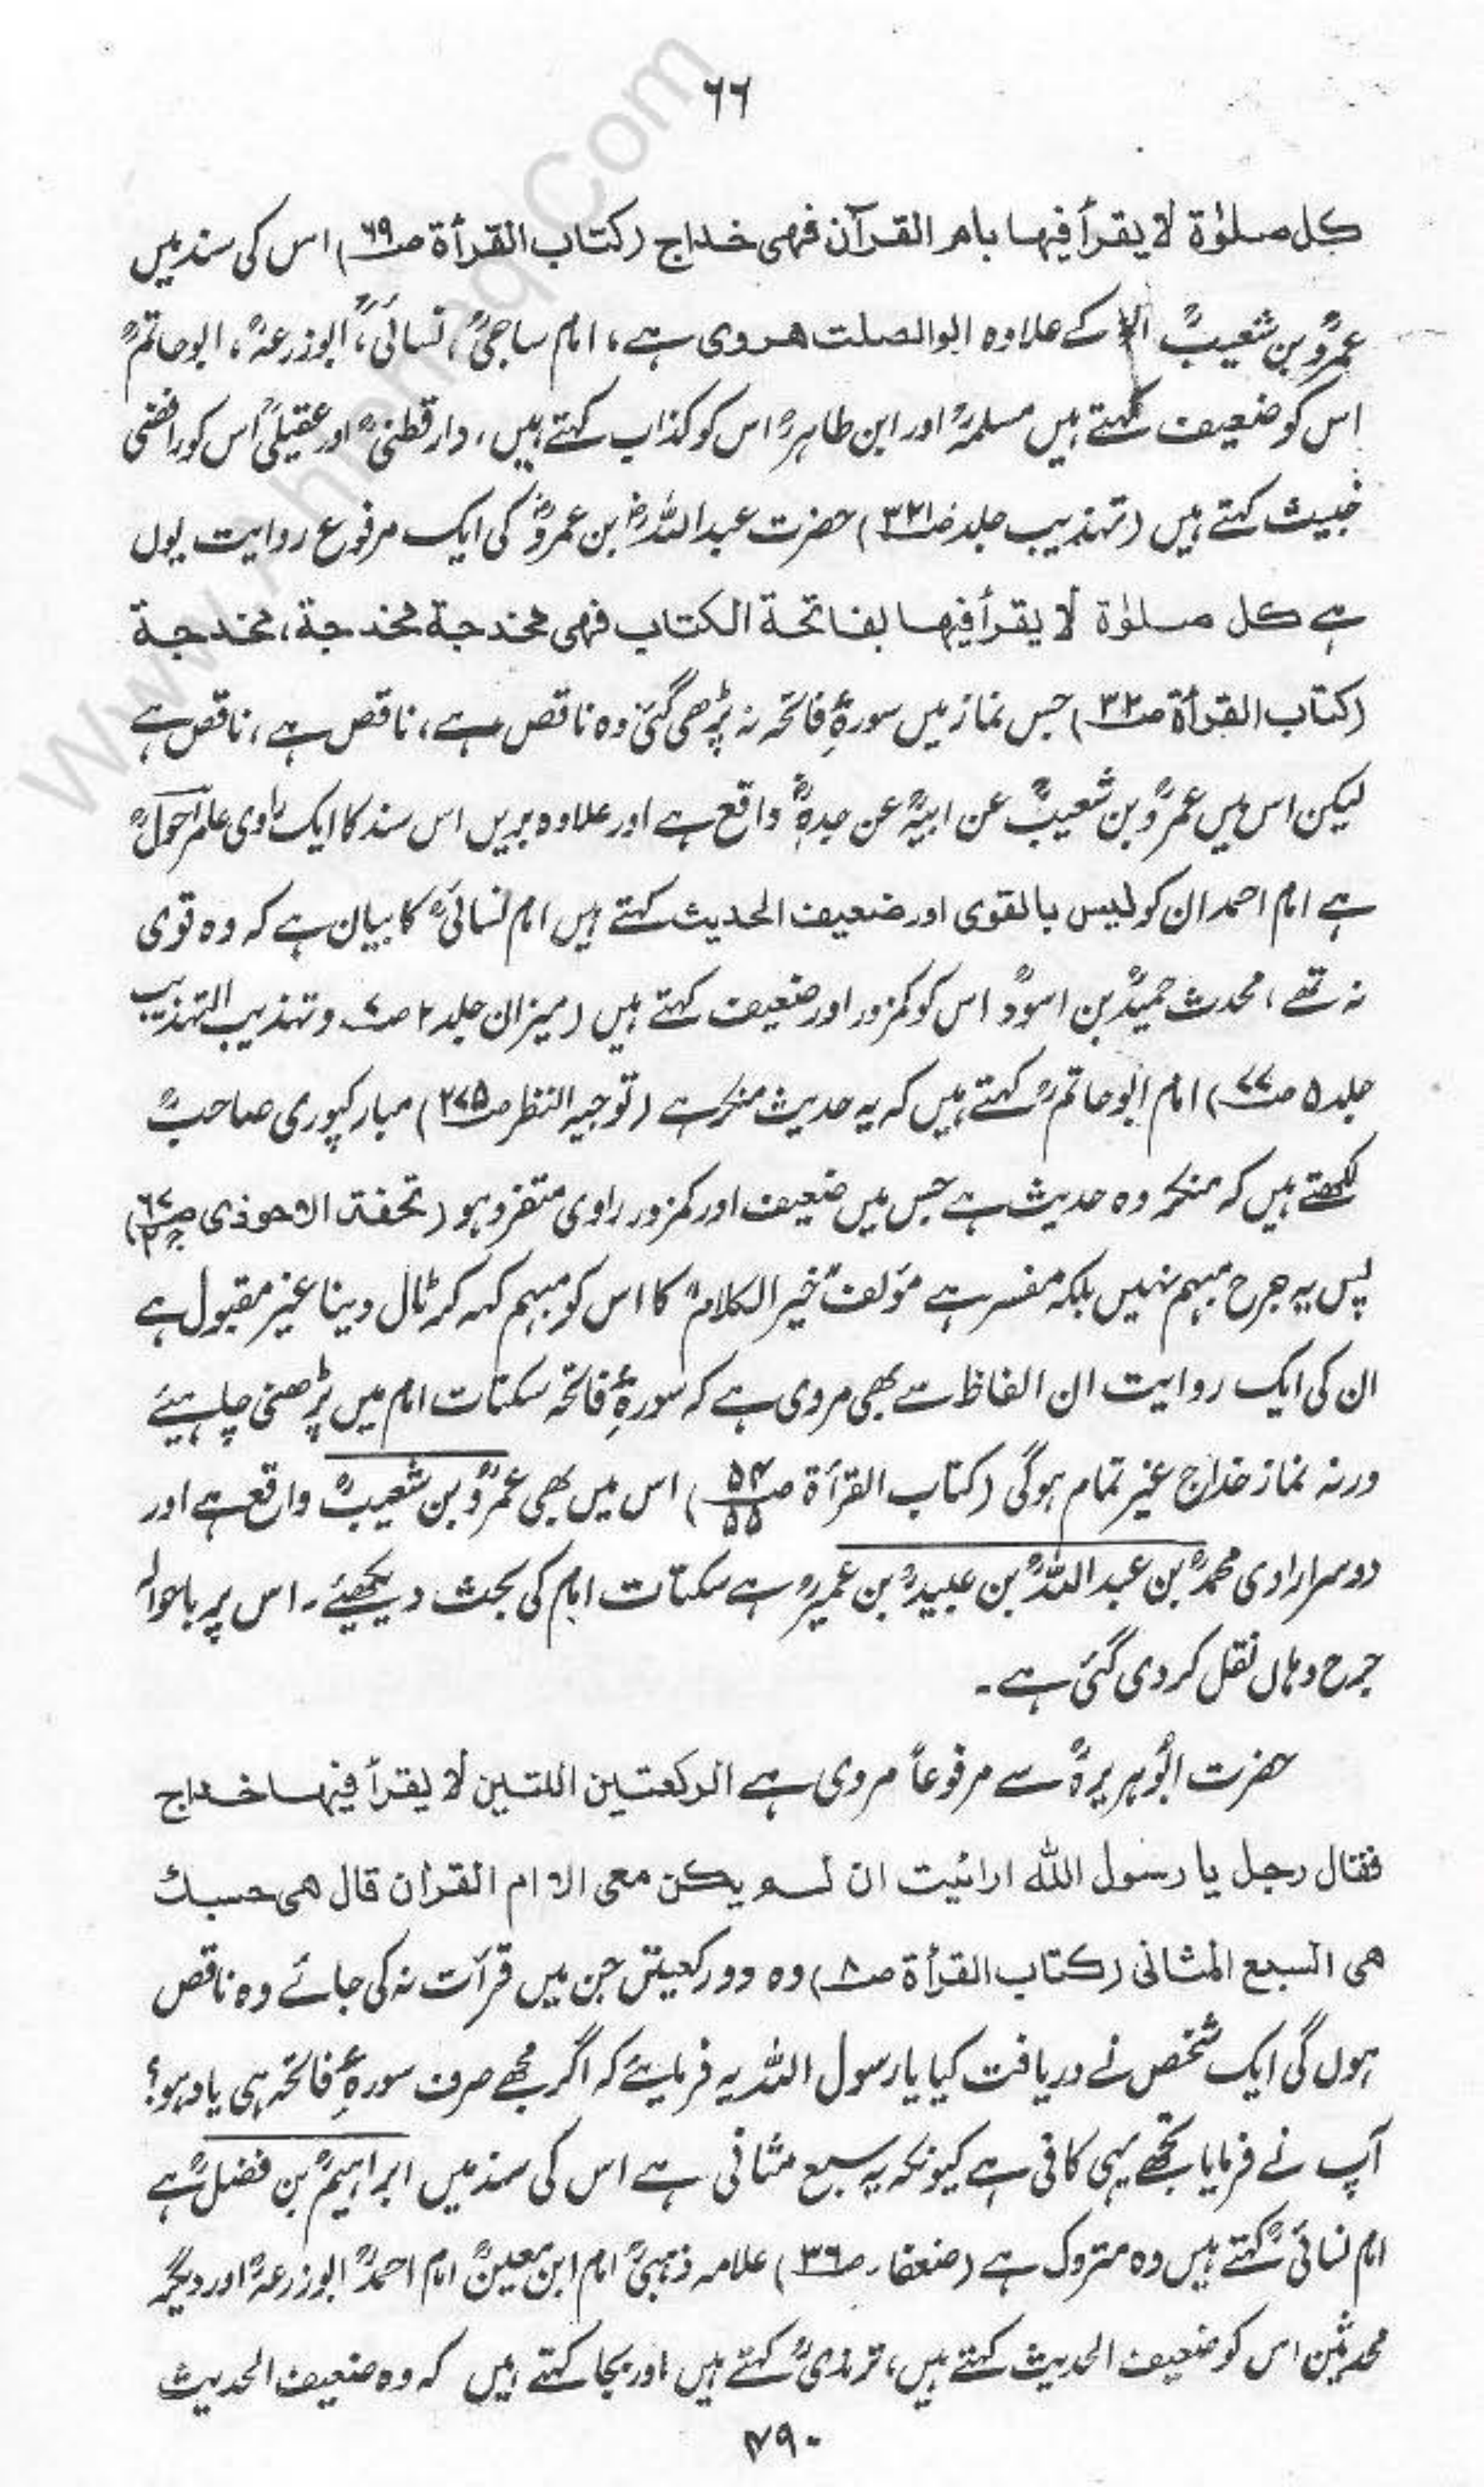 ٦٦
كل صلوٰة لا يقرأ فيها بام القرآن فهى خداج (كتاب القرأة صـ٦٩) اس کی سند میں
عمروؒ بن شعیبؒ الخ کے علاوہ ابوالصلت ھروی ہے، امام ساجیؒ، نسائیؒ، ابوزرعہؒ، ابوحاتمؒ
اس کو ضعیف کہتے ہیں مسلمہؒ اور ابن طاہرؒ اس کو کذاب کہتے ہیں، دارقطنیؒ اور عقیلیؒ اس کو رافضی
خبیث کہتے ہیں (تہذیب جلد صـ۳۲۱) حضرت عبداللہؓ بن عمروؓ کی ایک مرفوع روایت یوں
ہے كل صلوٰة لا يقرأ فيها بفاتحة الكتاب فهى مخدجة مخدجة، مخدجة
(كتاب القرأة صـ۳۲) جس نماز میں سورۂ فاتحہ نہ پڑھی گئی وہ ناقص ہے، ناقص ہے، ناقص ہے
لیکن اس میں عمروؒ بن شعیبؒ عن ابیہؒ عن جدہؓ واقع ہے اور علاوہ بریں اس سند کا ایک راوی عامر احولؒ
ہے امام احمد ان کو لیس بالقوی اور ضعیف الحدیث کہتے ہیں امام نسائیؒ کا بیان ہے کہ وہ قوی
نہ تھے، محدث حمیدؒ بن اسودؒ اس کو کمزور اور ضعیف کہتے ہیں (میزان جلد ۲ صـ۷ و تہذیب التہذیب
جلد ۵ صـ۷۷) امام ابوحاتمؒ کہتے ہیں کہ یہ حدیث منکر ہے (توجیہ النظر صـ۲۷۵) مبارکپوری صاحبؒ
لکھتے ہیں کہ منکر وہ حدیث ہے جس میں ضعیف اور کمزور راوی متفرد ہو (تحفۃ الاحوذی
پس یہ جرح مبہم نہیں بلکہ مفسر ہے مؤلف خیر الکلامؒ کا اس کو مبہم کہہ کر ٹال دینا غیر مقبول ہے
ان کی ایک روایت ان الفاظ سے بھی مروی ہے کہ سورۂ فاتحہ سکتات امام میں پڑھنی چاہیئے
ورنہ نماز خداج غیر تمام ہوگی (کتاب القرأة صـ۵۴/۵۵) اس میں بھی عمروؒ بن شعیبؒ واقع ہے اور
دوسرا راوی محمدؒ بن عبداللہؒ بن عبیدؒ بن عمیرؒ ہے سکتات امام کی بحث دیکھئے۔ اس پر باحوالہ
جرح وہاں نقل کردی گئی ہے۔
حضرت ابوہریرہؓ سے مرفوعاً مروی ہے الركعتين اللتين لا يقرأ فيهما خداج
فقال رجل يا رسول الله ارائيت ان لم يكن معى الا ام القرأن قال هى حسبك
هى السبع المثانى (كتاب القرأة صـ۸) وہ دو رکعتیں جن میں قرأت نہ کی جائے وہ ناقص
ہوں گی ایک شخص نے دریافت کیا یا رسول اللہ یہ فرمایئے کہ اگر مجھے صرف سورۂ فاتحہ ہی یاد ہو؟
آپ نے فرمایا تجھے یہی کافی ہے کیونکہ یہ سبع مثانی ہے اس کی سند میں ابراہیمؒ بن فضلؒ ہے
امام نسائیؒ کہتے ہیں وہ متروک ہے (ضعفاء صـ۳۶) علامہ ذہبیؒ امام ابن معینؒ امام احمدؒ ابوزرعہؒ اور دیگر
محدثینؒ اس کو ضعیف الحدیث کہتے ہیں، ترمذیؒ کہتے ہیں اور بجا کہتے ہیں کہ وہ ضعیف الحدیث